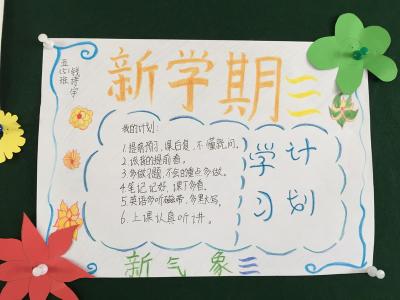 新学期
五(5)班
钱诗宇
我的计划:
1.提前预习,课后复,不懂就问。
2.该背的提前背。
3.多做习题,不会的重点多做。
4.笔记记好,课下多看。
5.英语多听磁带,多默写。
6.上课认真听讲。
学习
计划
新气象